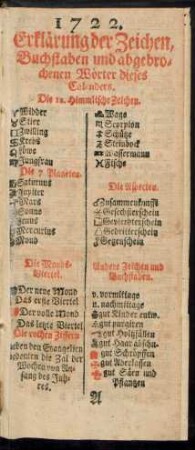 1722.
Erklärung der Zeichen,
Buchstaben und abgebro-
chenen Wörter dieses
Calenders.
Die 12. Himmlische Zeichen.
Widder
Stier
Zwilling
Krebs
Löwe
Jungfrau
Die 7. Planeten.
Saturnus
Jupiter
Mars
Sonne
Venus
Mercurius
Mond
Die Monds-
Viertel.
Der neue Mond
Das erste Viertel
Der volle Mond
Das letzte Viertel
Die rothen Ziffern
neben den Evangelien
bedeuten die Zal der
Wochen von An-
fang des Jah-
res.
Waag
Scorpion
Schütz
Steinbock
Wassermann
Fische
Die Aspecten.
Zusammenkunfft
Gesechsterschein
Gevierdterschein
Gedritterschein
Gegenschein
Andere Zeichen und
Buchstaben.
v. vormittags
n. nachmittags
gut Kinder entw.
gut purgiren
gut Holtzfällen
gut Haar abschn.
gut Schröpffen
gut Aderlassen
gut Säen und
Pflantzen
A